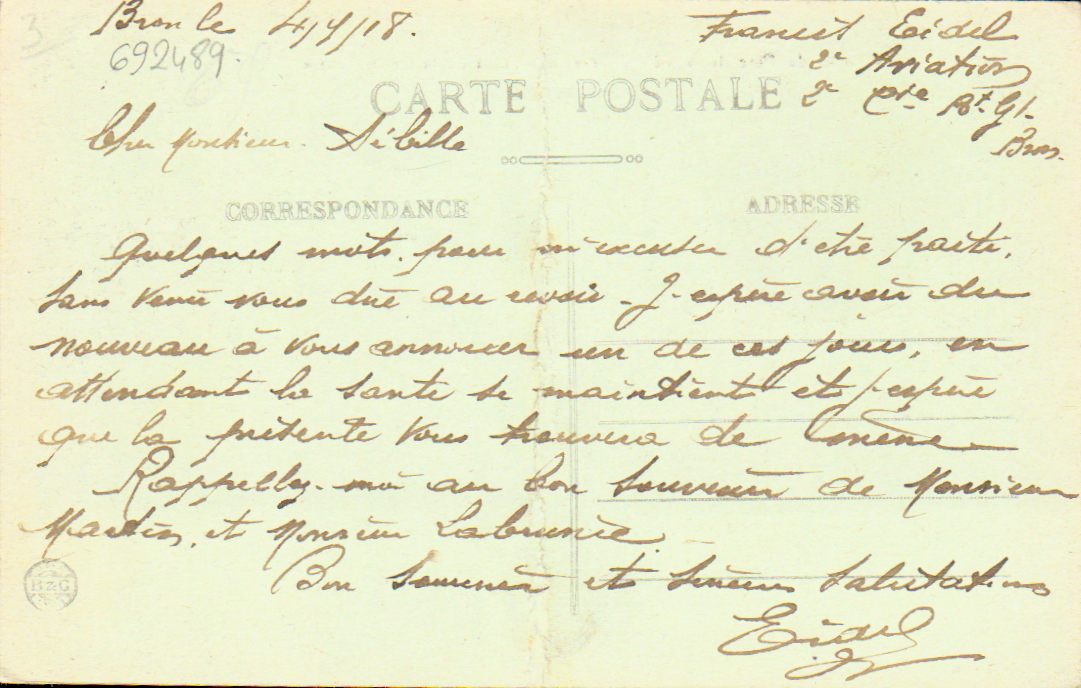 Bron le 4/4/18.
692489.
Francis Eidel
2e Aviation
2e Cie Pt. G1.
Bron.
CARTE POSTALE
Cher Monsieur Sébille
CORRESPONDANCE
ADRESSE
Quelques mots, pour m'excuser d'etre partis,
sans venir vous dire au revoir. J'espère avoir du
nouveau à vous annoncer un de ces jours, en
attendant la santé se maintient et j'espère
que la présente vous trouvera de même
Rappellez-moi au bon souvenir de Monsieur
Martin, et Monsieur Labrunie.
Bon souvenir et sincères salutations
Eidel
B & G